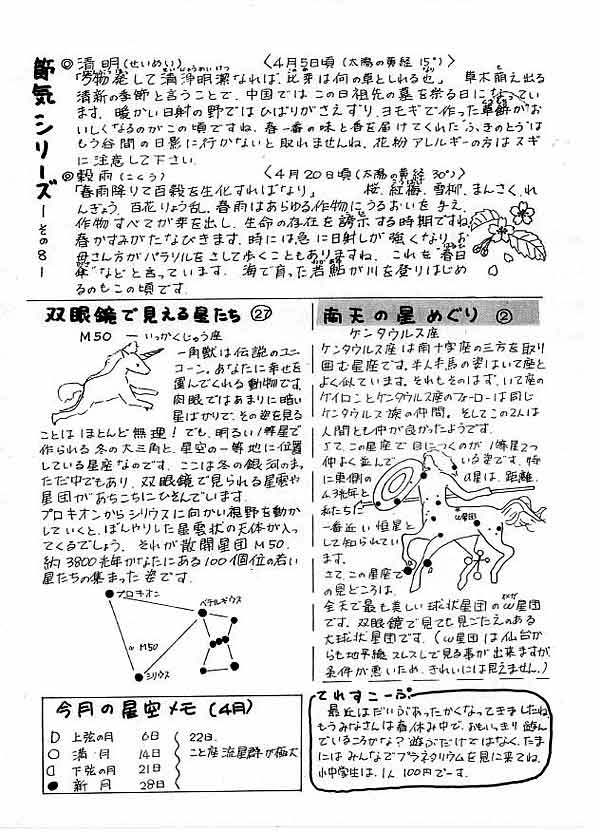 節気シリーズ
ーその8ー
◎清明(せいめい) 〈4月5日頃(太陽の黄経15°)〉
「万物発して清浄明潔なれば、此芽は何の草としれる也」 草木萌え出る
清新の季節と言うことで、中国ではこの日祖先の墓を祭る日になってい
ます。暖かい日射の野ではひばりがさえずり、ヨモギで作った草餅がお
いしくなるのがこの頃ですね。春一番の味と香を届けてくれたふきのとうは
もう谷間の日影に行かないと取れませんね。花粉アレルギーの方はスギ
に注意して下さい。
◎穀雨(こくう) 〈4月20日頃(太陽の黄経30°)〉
「春雨降りて百穀を生化すればなり」 桜、紅梅、雪柳、まんさく、れ
んぎょう、百花りょう乱。春雨はあらゆる作物にうるおいを与え、
作物すべてが芽を出し、生命の存在を誇示する時期ですね。
春がすみがたなびきます。時には急に日射しが強くなり、お
母さん方がパラソルをさして歩くこともありますね。これを"春日
傘"などと言っています。海で育った若鮎が川を登りはじめ
るのもこの頃です。
双眼鏡で見える星たち ㉗
M50 ーいっかくじゅう座
一角獣は伝説のユニ
コーン。あなたに幸せを
運んでくれる動物です。
肉眼ではあまりに暗い
星ばかりで、その姿を見る
ことはほとんど無理!でも、明るい1等星で
作られる冬の大三角と、星空の一等地に位置
している星座なのです。ここは冬の銀河のま
ただ中でもあり、双眼鏡で見られる星雲や
星団があちこちにひそんでいます。
プロキオンからシリウスに向かい視野を動か
していくと、ぼんやりした星雲状の天体が入っ
てくるでしょう。それが散開星団M50。
約3800光年かなたにある100個位の若い
星たちの集まった姿です。
プロキオン
ベテルギウス
M50
シリウス
南天の星めぐり ②
ケンタウルス座
ケンタウルス座は南十字座の三方を取り
囲む星座です。半人半馬の姿はいて座と
よく似ています。それもそのはず、いて座の
ケイロンとケンタウルス座のフォーローは同じ
ケンタウルス族の仲間。そしてこの2人は
人間とも仲が良かったようです。
さて、この星座で目につくのが1等星2つ
仲よく並んでいる姿です。特
に東側のα星は、距離
4.3光年と
私たちに
一番近い恒星と
して知られてい
ます。
ω星団
さて、この星座で
の見どころは、
全天で最も美しい球状星団のω星団
です。双眼鏡で見ても見ごたえのある
大球状星団です。(ω星団は仙台か
らも地平線スレスレで見る事が出来ますが
条件が悪いため、きれいには見えません。)
今月の星空メモ(4月)
上弦の月 6日
満月 14日
下弦の月 21日
新月 28日
22日
こと座流星群が極大
てれすこーぷ
最近はだいぶあったかくなってきましたね。
もうみなさんは春休み中で、おもいっきり遊ん
でいるころかな?遊ぶだけではなく、たま
にはみんなでプラネタリウムを見に来てね。
小中学生は、1人100円でーす。